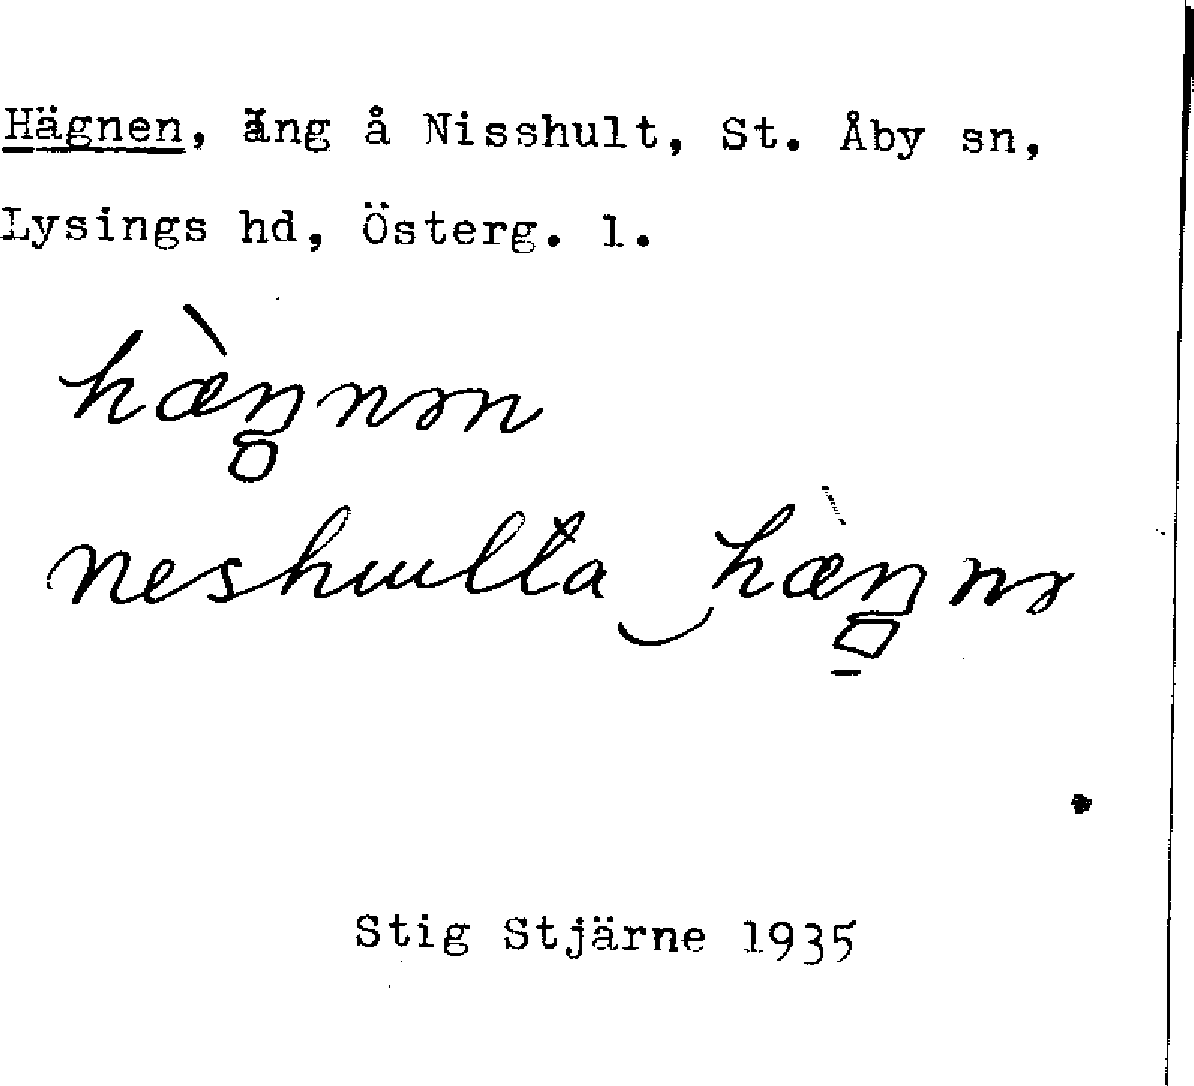 Hägnen, äng å Nisshult, St. Åby sn,
Lysings hd, Österg. l.
hæ̀ŋnən
neshulta hæ̀ŋnə
Stig Stjärne 1935